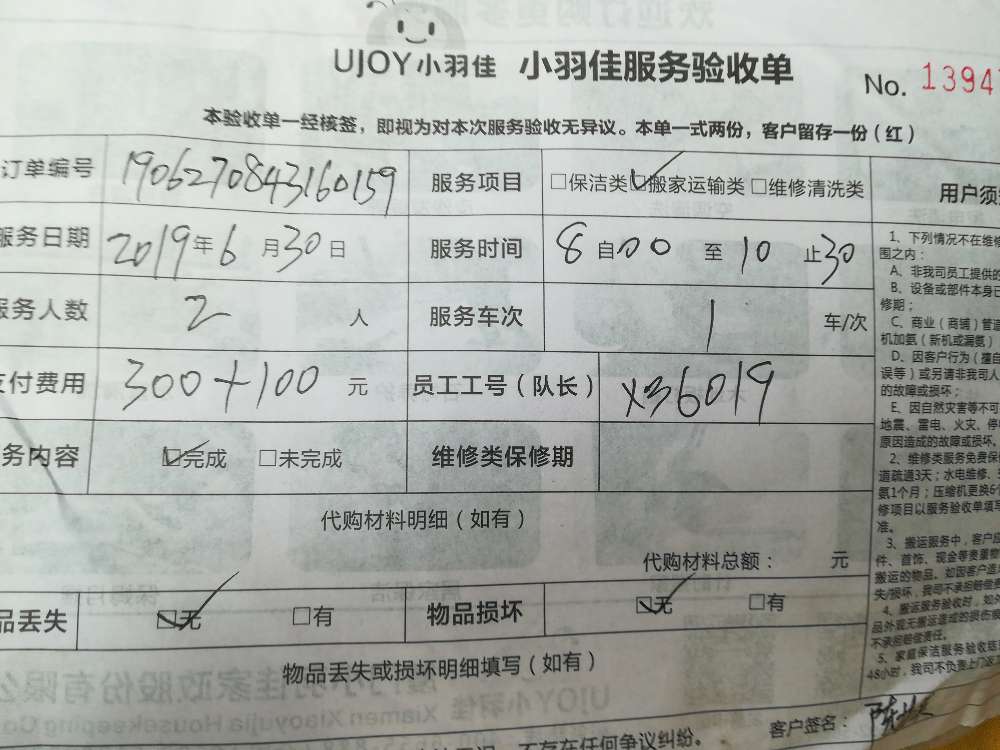 UJOY小羽佳 小羽佳服务验收单
No. 1394
本验收单一经核签，即视为对本次服务验收无异议。本单一式两份，客户留存一份（红）
订单编号 1906270843160159 服务项目 □保洁类 ☑搬家运输类 □维修清洗类
服务日期 2019年6月30日 服务时间 8自00至10止30
服务人数 2人 服务车次 1车/次
支付费用 300+100元 员工工号（队长） X36019
务内容 ☑完成 □未完成 维修类保修期
代购材料明细（如有）
代购材料总额： 元
品丢失 ☑无 □有 物品损坏 ☑无 □有
物品丢失或损坏明细填写（如有）
客户签名：
不存在任何争议纠纷。
用户须
1、下列情况不在维修
围之内：
A、非我司员工提供的
B、设备或部件本身已
修期；
C、商业（商铺）管道
机加氨（新机或漏氨）
D、因客户行为（擅自
误等）或另请非我司人
的故障或损坏；
E、因自然灾害等不可
地震、雷电、火灾、停
原因造成的故障或损坏。
2、维修类服务免费保
道疏通3天；水电维修、
氨1个月；压缩机更换6个
修项目以服务验收单填写
准。
3、搬运服务中，客户应
件、首饰、现金等贵重物
搬运的物品。如因客户造
失/损坏，我司不承担赔偿
4、搬运服务验收时，如外
品外观无搬运造成的损伤
不承担赔偿责任。
5、家庭保洁服务验收结
48小时，我司不负责上门